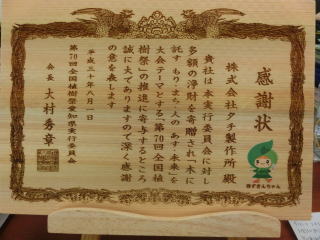 感謝状
株式会社タチ製作所 殿
貴社は本実行委員会に対し
多額の浄財を寄贈され「木に
託す もり・まち・人の あす・未来」を
大会テーマとする「第70回全国植
樹祭」の推進に寄与するところ
誠に大でありますので深く感謝
の意を表します
平成三十年八月一日
第70回全国植樹祭愛知県実行委員会
会長 大村秀章
森ずきんちゃん